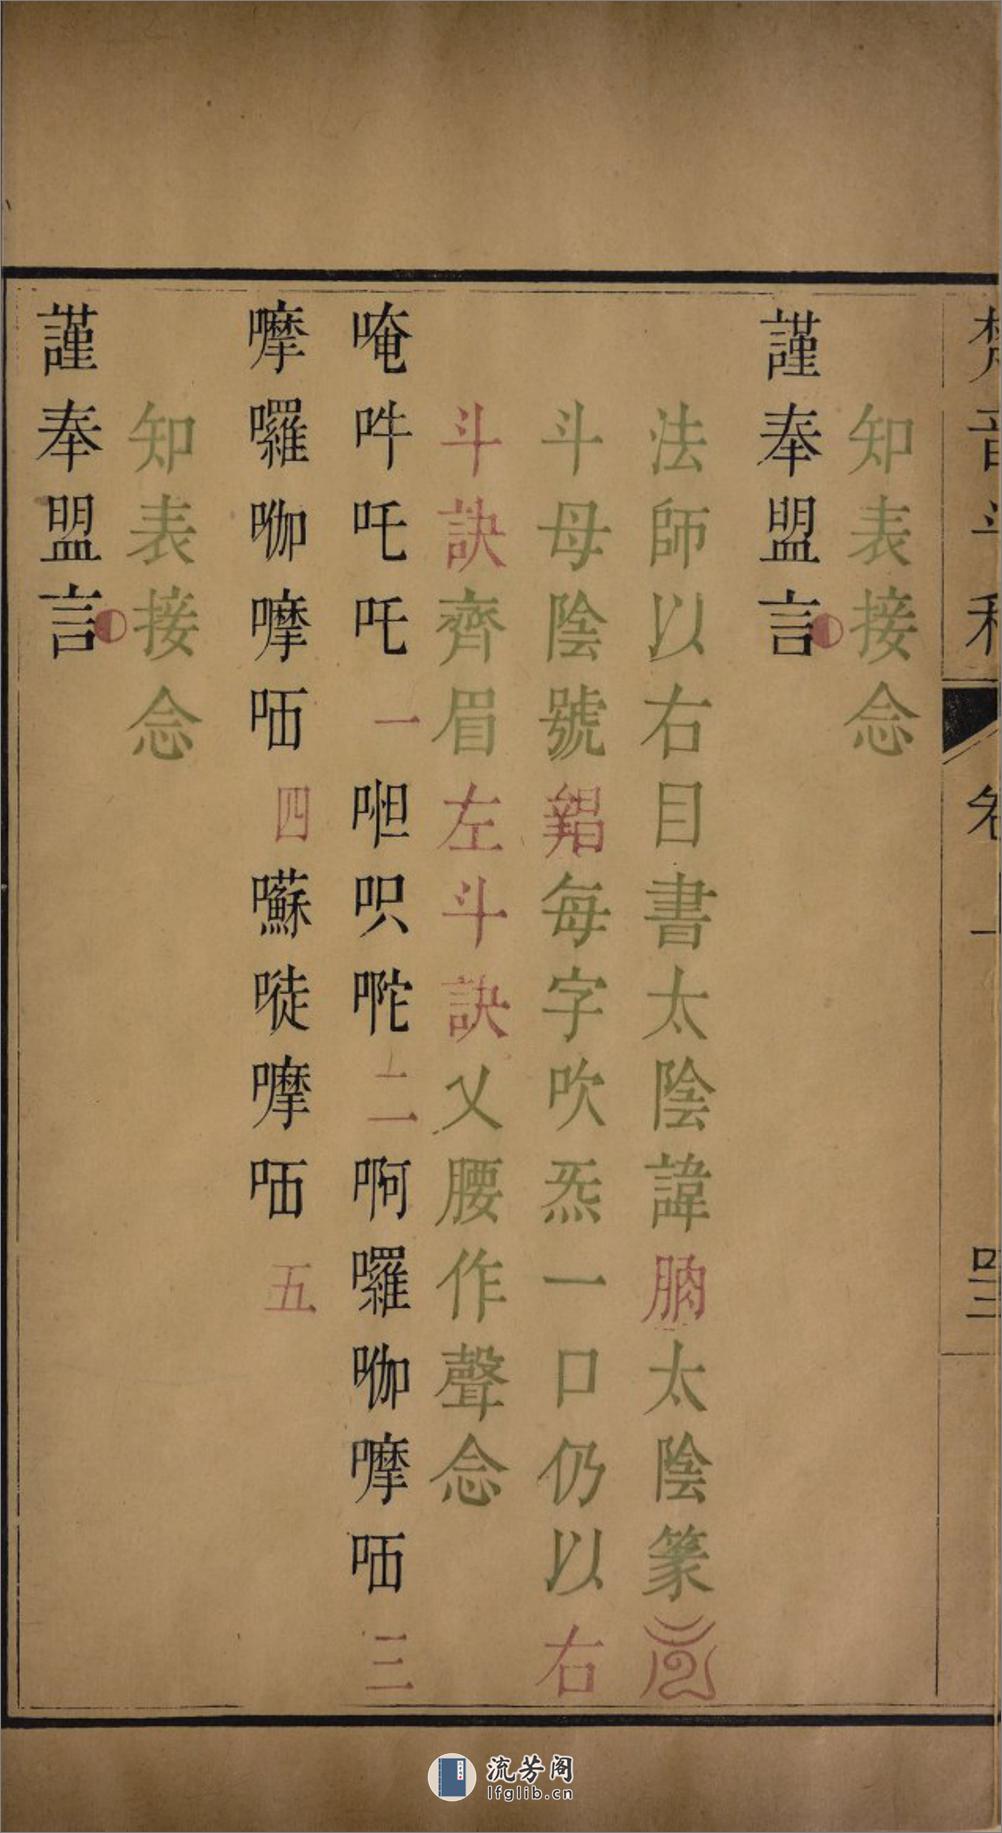 梵音斗科
卷一
四二
知表接念
謹奉盟言
法師以右目書太陰諱太陰篆
斗母陰號每字吹炁一口仍以右
斗訣齊眉左斗訣乂腰作聲念
唵吽吒吒一呾呮㖠二啊囉㗎嚤哂三
嚤囉㗎嚤哂四囌嘥嚤哂五
知表接念
謹奉盟言
流芳阁
lfglib.cn